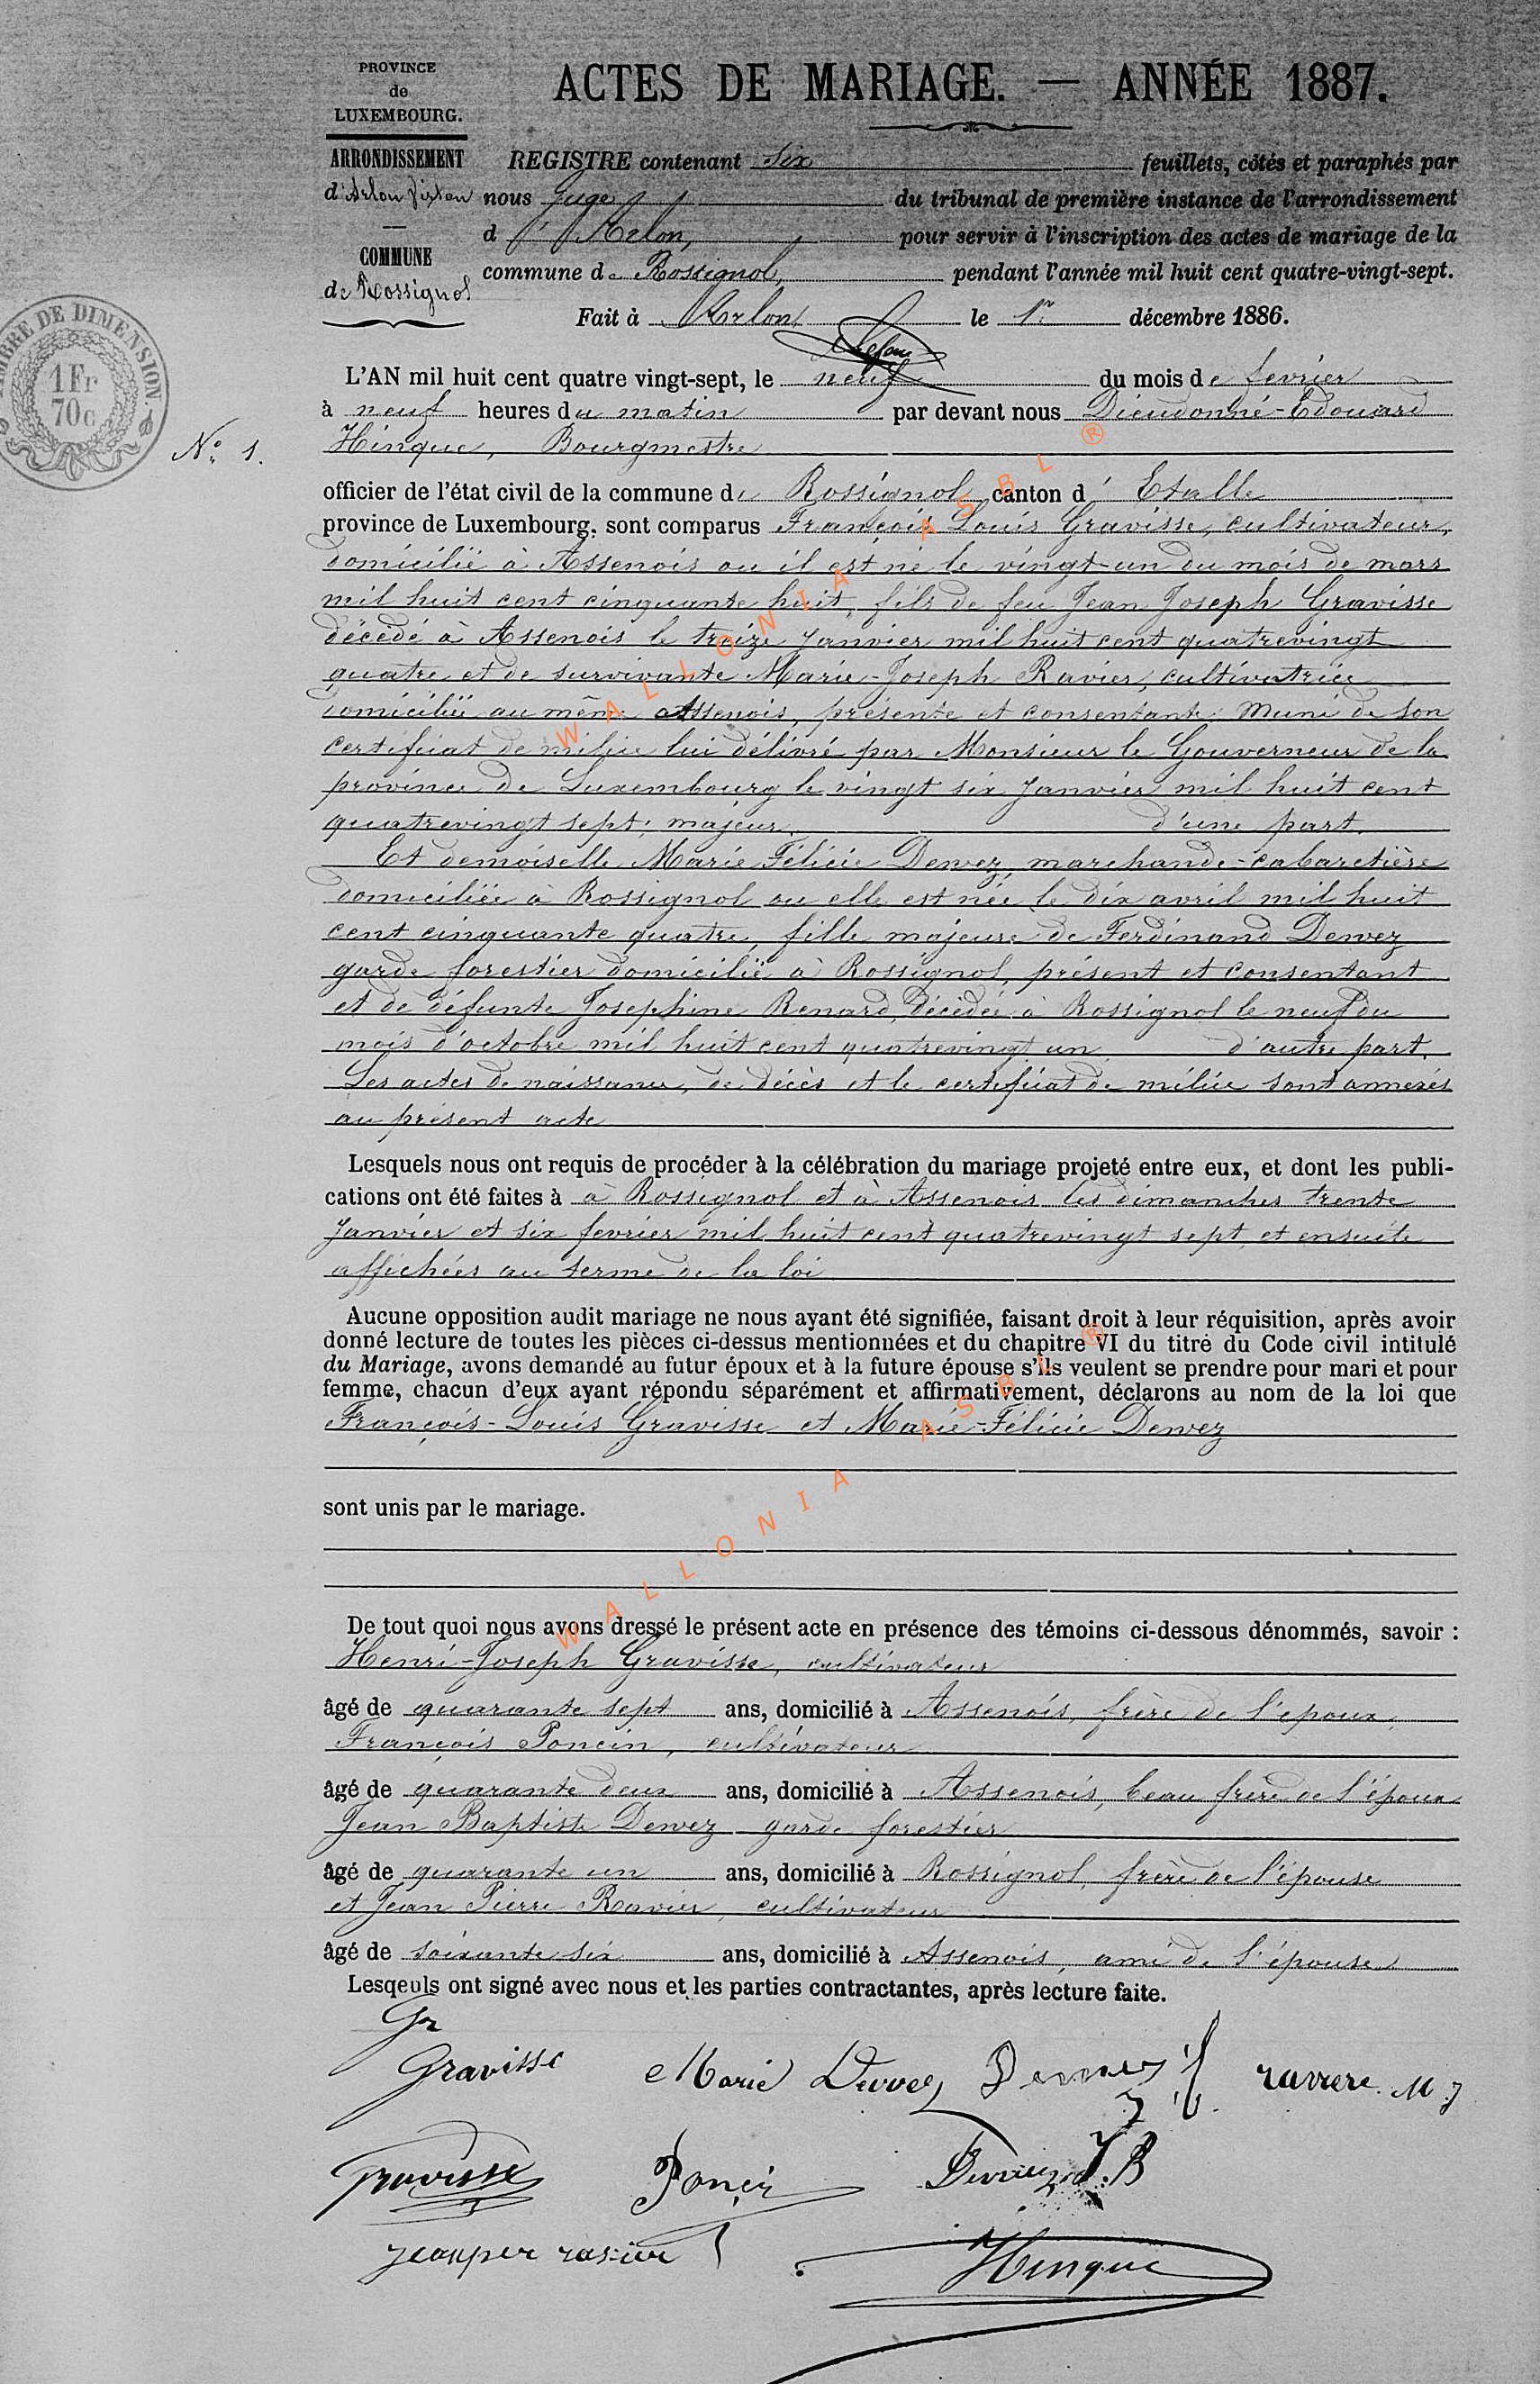 PROVINCE
de
LUXEMBOURG.
ACTES DE MARIAGE. — ANNÉE 1887.
ARRONDISSEMENT
d'Arlon
REGISTRE contenant six feuillets, côtés et paraphés par
nous Juge du tribunal de première instance de l'arrondissement
d'Arlon, pour servir à l'inscription des actes de mariage de la
COMMUNE
de Rossignol
commune de Rossignol, pendant l'année mil huit cent quatre-vingt-sept.
Fait à Arlon le 1er décembre 1886.
TIMBRE DE DIMENSION.
1 Fr
70c
L'AN mil huit cent quatre vingt-sept, le neuf du mois de fevrier
à neuf heures du matin par devant nous Dieudonné-Edouard
No 1.
Hinque, Bourgmestre
officier de l'état civil de la commune de Rossignol canton d'Etalle
province de Luxembourg, sont comparus François Louis Gravisse, cultivateur,
domicilié à Assenois ou il est né le vingt-un du mois de mars
mil huit cent cinquante huit, fils de feu Jean Joseph Gravisse
décédé à Assenois le treize Janvier mil huit cent quatrevingt
quatre et de survivante Marie-Joseph Ravier, cultivatrice
domiciliée au même Assenois, présente et consentante. Muni de son
certificat de milice lui délivré par Monsieur le Gouverneur de la
province de Luxembourg le vingt six Janvier mil huit cent
quatrevingt sept; majeur. d'une part.
Et demoiselle Marie Félicie Dewez, marchande-cabaretière
domiciliée à Rossignol ou elle est née le dix avril mil huit
cent cinquante quatre, fille majeure de Ferdinand Dewez
garde forestier domicilié à Rossignol, présent et consentant
et de défunte Josephine Renard, décédée à Rossignol le neuf du
mois d'octobre mil huit cent quatrevingt un. d'autre part.
Les actes de naissance, de décès et le certificat de milice sont annexés
au présent acte
Lesquels nous ont requis de procéder à la célébration du mariage projeté entre eux, et dont les publi-
cations ont été faites à à Rossignol et à Assenois les dimanches trente
Janvier et six fevrier mil huit cent quatrevingt sept et ensuite
affichées au terme de la loi
Aucune opposition audit mariage ne nous ayant été signifiée, faisant droit à leur réquisition, après avoir
donné lecture de toutes les pièces ci-dessus mentionnées et du chapitre VI du titre du Code civil intitulé
du Mariage, avons demandé au futur époux et à la future épouse s'ils veulent se prendre pour mari et pour
femme, chacun d'eux ayant répondu séparément et affirmativement, déclarons au nom de la loi que
François-Louis Gravisse et Marie-Félicie Dewez
sont unis par le mariage.
De tout quoi nous avons dressé le présent acte en présence des témoins ci-dessous dénommés, savoir :
Henri-Joseph Gravisse, cultivateur
âgé de quarante sept ans, domicilié à Assenois, frère de l'époux,
François Poncin, cultivateur
âgé de quarante deux ans, domicilié à Assenois, beau frère de l'époux
Jean Baptiste Dewez garde forestier
âgé de quarante un ans, domicilié à Rossignol, frère de l'épouse
et Jean Pierre Ravier, cultivateur
âgé de soixante six ans, domicilié à Assenois, ami de l'épouse
Lesqeuls ont signé avec nous et les parties contractantes, après lecture faite.
Gr
Gravisse Marie Dewez Dewez f raviere M J
Gravisse Poncin Dewez J.B
jeanpier ravier Hinque
WALLONIA ASBL ®
WALLONIA ASBL ®